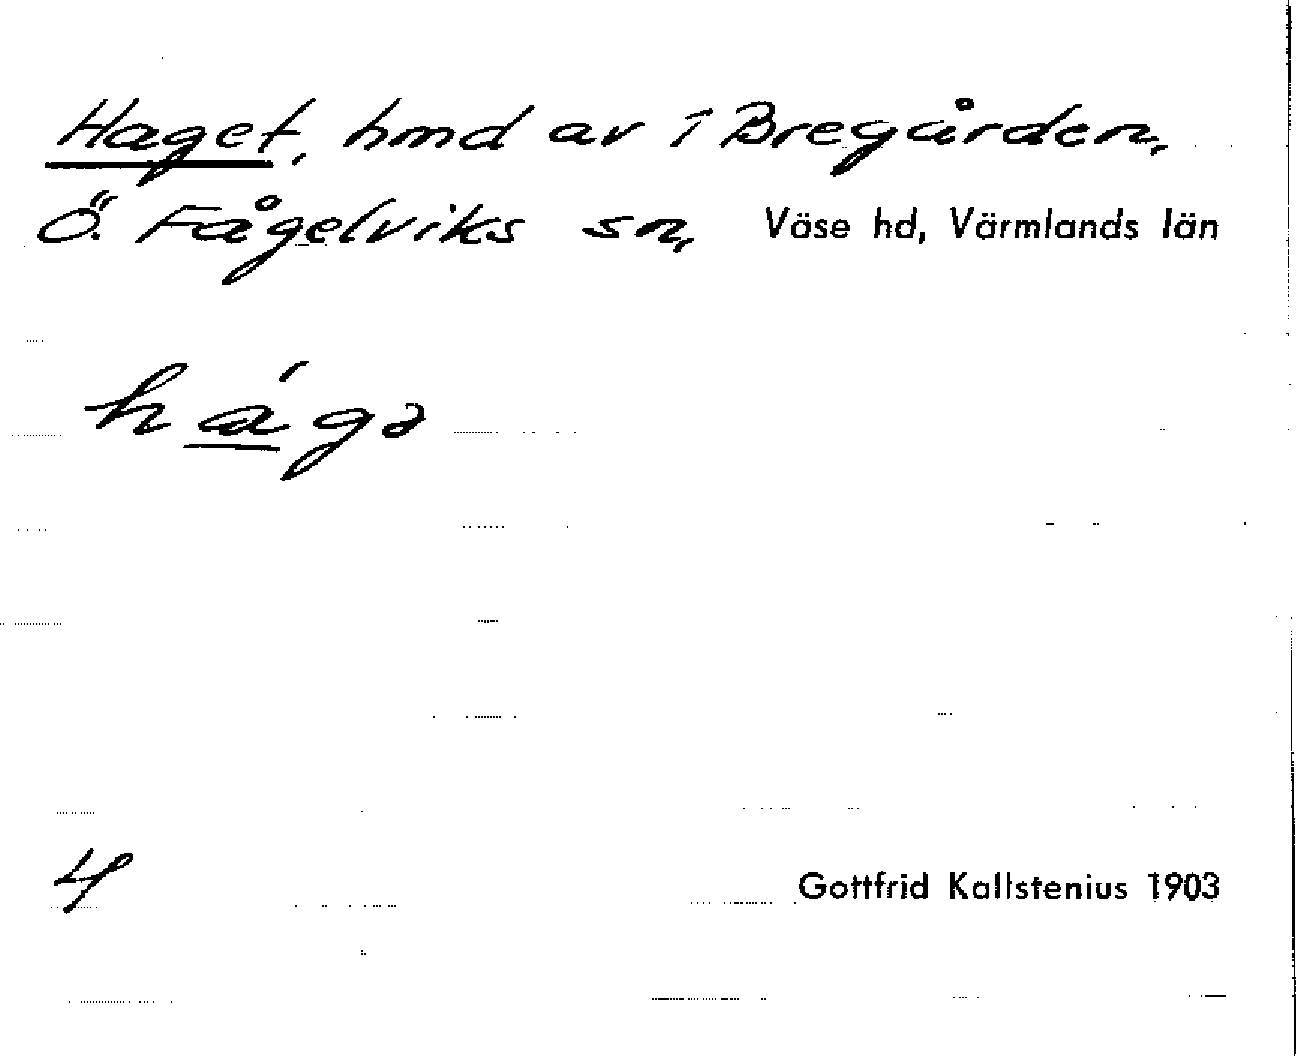 Haget, hmd av i Bregården,
Ö. Fågelviks sn, Väse hd, Värmlands län
há̲gə
4 Gottfrid Kallstenius 1903